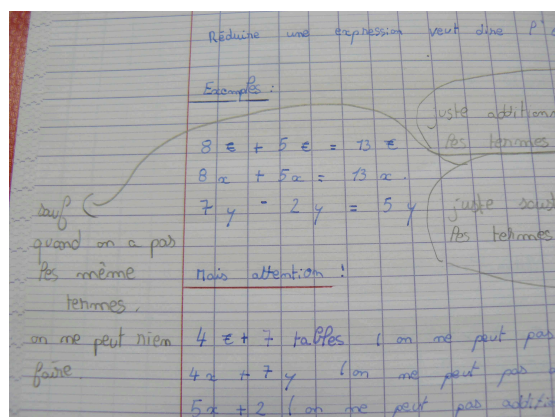 Réduire une expression veut dire
Exemples :
juste addition
les termes
8 € + 5 € = 13 €
8x + 5x = 13x.
7y - 2y = 5y
juste sous
les termes
sauf
quand on a pas
les même
termes.
on ne peut rien
faire.
Mais attention !
4 € + 7 tables (on ne peut pas
4x + 7y (on ne peut pas
5x + 2 (on ne peut pas additi